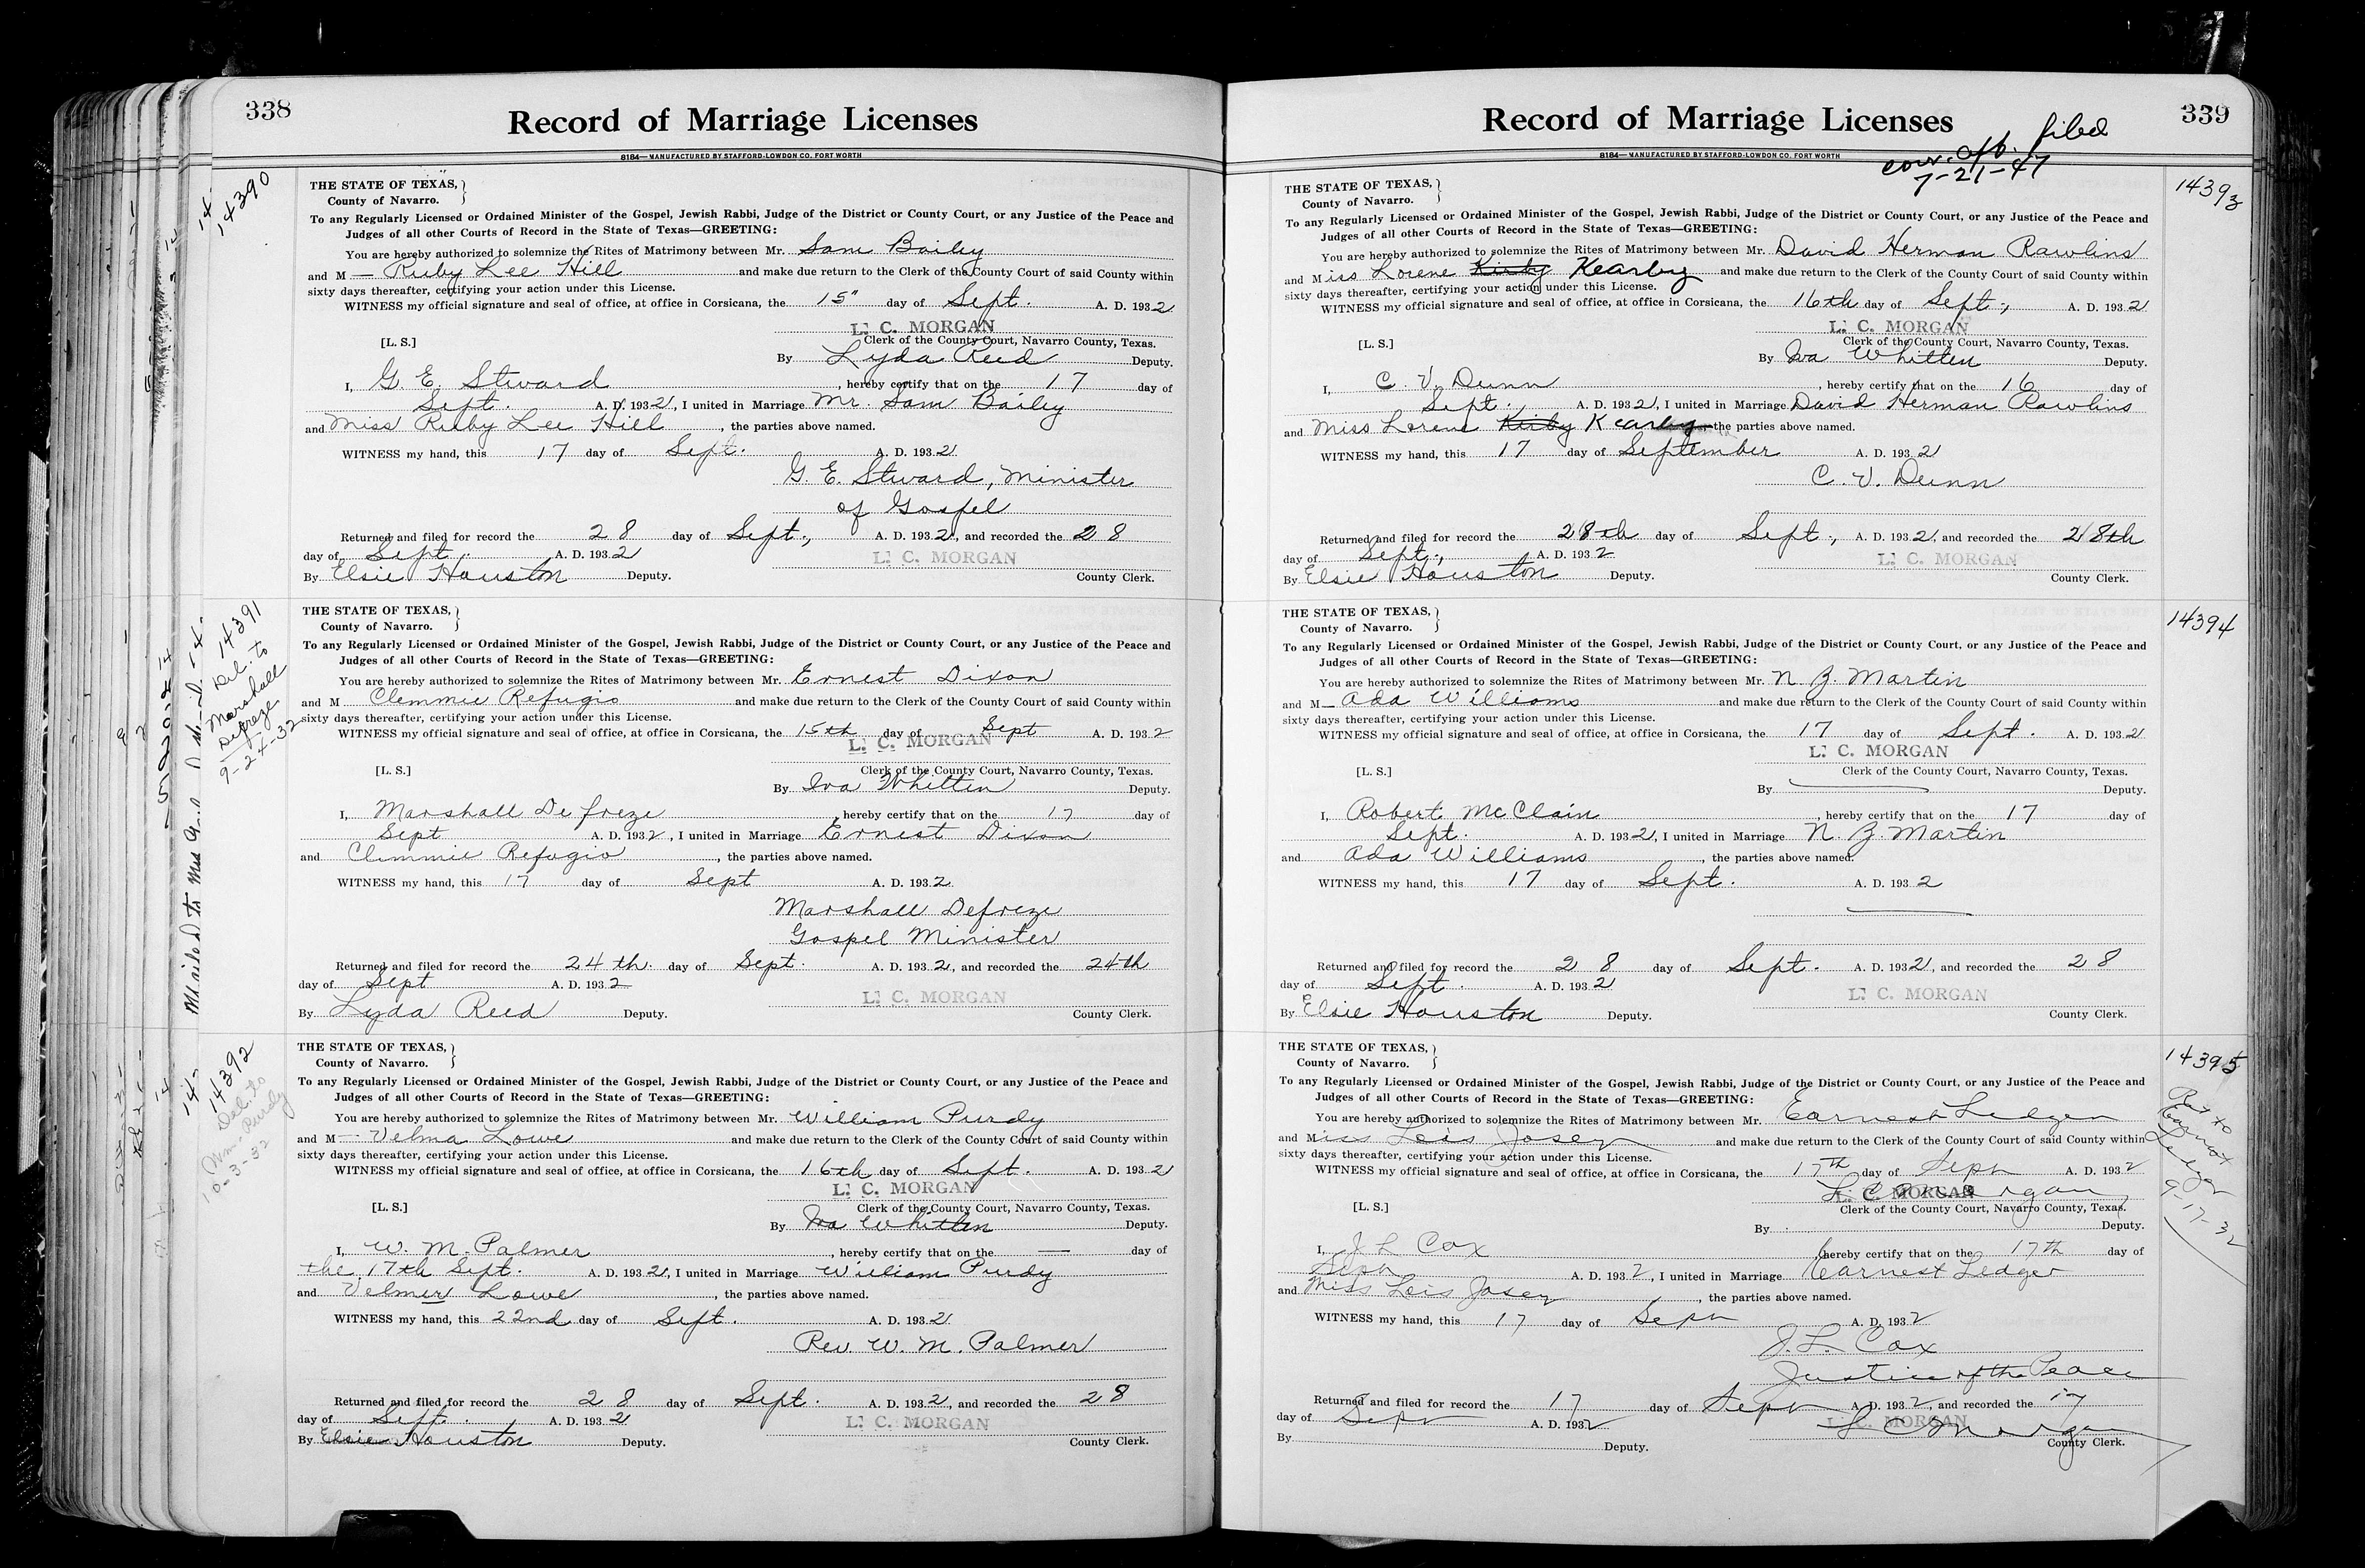 338
Record of Marriage Licenses
8184—MANUFACTURED BY STAFFORD-LOWDON CO. FORT WORTH
14390
THE STATE OF TEXAS,
County of Navarro.
To any Regularly Licensed or Ordained Minister of the Gospel, Jewish Rabbi, Judge of the District or County Court, or any Justice of the Peace and
Judges of all other Courts of Record in the State of Texas—GREETING:
You are hereby authorized to solemnize the Rites of Matrimony between Mr. Sam Bailey
and M — Ruby Lee Hill and make due return to the Clerk of the County Court of said County within
sixty days thereafter, certifying your action under this License.
WITNESS my official signature and seal of office, at office in Corsicana, the 15" day of Sept. A. D. 1932
L. C. MORGAN
[L. S.] Clerk of the County Court, Navarro County, Texas.
By Lyda Reed Deputy.
I, G. E. Stward, hereby certify that on the 17 day of
Sept. A. D. 1932, I united in Marriage Mr. Sam Bailey
and Miss Ruby Lee Hill, the parties above named.
WITNESS my hand, this 17 day of Sept. A. D. 1932
G. E. Stward, Minister
of Gospel
Returned and filed for record the 28 day of Sept., A. D. 1932, and recorded the 28
day of Sept. A. D. 1932
L. C. MORGAN
By Elsie Houston Deputy. County Clerk.
14391
Del. to
Marshall
Defreze
9-24-32
THE STATE OF TEXAS,
County of Navarro.
To any Regularly Licensed or Ordained Minister of the Gospel, Jewish Rabbi, Judge of the District or County Court, or any Justice of the Peace and
Judges of all other Courts of Record in the State of Texas—GREETING:
You are hereby authorized to solemnize the Rites of Matrimony between Mr. Ernest Dixon
and M Clemmie Refugio and make due return to the Clerk of the County Court of said County within
sixty days thereafter, certifying your action under this License.
WITNESS my official signature and seal of office, at office in Corsicana, the 15th day of Sept A. D. 1932
L. C. MORGAN
[L. S.] Clerk of the County Court, Navarro County, Texas.
By Iva Whitten Deputy.
I, Marshall Defreze, hereby certify that on the 17 day of
Sept A. D. 1932, I united in Marriage Ernest Dixon
and Clemmie Refugio, the parties above named.
WITNESS my hand, this 17 day of Sept A. D. 1932
Marshall Defreze
Gospel Minister
Returned and filed for record the 24th. day of Sept. A. D. 1932, and recorded the 24th
day of Sept A. D. 1932
L. C. MORGAN
By Lyda Reed Deputy. County Clerk.
14392
Del. to
Wm. Purdy
10-3-32
THE STATE OF TEXAS,
County of Navarro.
To any Regularly Licensed or Ordained Minister of the Gospel, Jewish Rabbi, Judge of the District or County Court, or any Justice of the Peace and
Judges of all other Courts of Record in the State of Texas—GREETING:
You are hereby authorized to solemnize the Rites of Matrimony between Mr. William Purdy
and M — Velma Lowe and make due return to the Clerk of the County Court of said County within
sixty days thereafter, certifying your action under this License.
WITNESS my official signature and seal of office, at office in Corsicana, the 16th day of Sept. A. D. 1932
L. C. MORGAN
[L. S.] Clerk of the County Court, Navarro County, Texas.
By Iva Whitten Deputy.
I, W. M. Palmer, hereby certify that on the — day of
the 17th Sept. A. D. 1932, I united in Marriage William Purdy
and Velmer Lowe, the parties above named.
WITNESS my hand, this 22nd day of Sept. A. D. 1932
Rev. W. M. Palmer
Returned and filed for record the 28 day of Sept. A. D. 1932, and recorded the 28
day of Sept. A. D. 1932
L. C. MORGAN
By Elsie Houston Deputy. County Clerk.
339
Record of Marriage Licenses
8184—MANUFACTURED BY STAFFORD-LOWDON CO. FORT WORTH
corr. aff. filed
7-21-47
14393
THE STATE OF TEXAS,
County of Navarro.
To any Regularly Licensed or Ordained Minister of the Gospel, Jewish Rabbi, Judge of the District or County Court, or any Justice of the Peace and
Judges of all other Courts of Record in the State of Texas—GREETING:
You are hereby authorized to solemnize the Rites of Matrimony between Mr. David Herman Rawlins
and Miss Lorene Kirby Kearby and make due return to the Clerk of the County Court of said County within
sixty days thereafter, certifying your action under this License.
WITNESS my official signature and seal of office, at office in Corsicana, the 16th day of Sept., A. D. 1932
L. C. MORGAN
[L. S.] Clerk of the County Court, Navarro County, Texas.
By Iva Whitten Deputy.
I, C. V. Dunn, hereby certify that on the 16 day of
Sept. A. D. 1932, I united in Marriage David Herman Rawlins
and Miss Lorene Kirby Kearby the parties above named.
WITNESS my hand, this 17 day of September A. D. 1932
C. V. Dunn
Returned and filed for record the 28th day of Sept., A. D. 1932, and recorded the 28th
day of Sept., A. D. 1932
L. C. MORGAN
By Elsie Houston Deputy. County Clerk.
14394
THE STATE OF TEXAS,
County of Navarro.
To any Regularly Licensed or Ordained Minister of the Gospel, Jewish Rabbi, Judge of the District or County Court, or any Justice of the Peace and
Judges of all other Courts of Record in the State of Texas—GREETING:
You are hereby authorized to solemnize the Rites of Matrimony between Mr. N. Z. Martin
and M — Ada Williams and make due return to the Clerk of the County Court of said County within
sixty days thereafter, certifying your action under this License.
WITNESS my official signature and seal of office, at office in Corsicana, the 17 day of Sept. A. D. 1932
L. C. MORGAN
[L. S.] Clerk of the County Court, Navarro County, Texas.
By — Deputy.
I, Robert McClain, hereby certify that on the 17 day of
Sept. A. D. 1932, I united in Marriage N. Z. Martin
and Ada Williams, the parties above named.
WITNESS my hand, this 17 day of Sept. A. D. 1932
Returned and filed for record the 28 day of Sept. A. D. 1932, and recorded the 28
day of Sept. A. D. 1932
L. C. MORGAN
By Elsie Houston Deputy. County Clerk.
14395
to
Earnest
Ledger
9-17-32
THE STATE OF TEXAS,
County of Navarro.
To any Regularly Licensed or Ordained Minister of the Gospel, Jewish Rabbi, Judge of the District or County Court, or any Justice of the Peace and
Judges of all other Courts of Record in the State of Texas—GREETING:
You are hereby authorized to solemnize the Rites of Matrimony between Mr. Earnest Ledger
and Miss Lois Josey and make due return to the Clerk of the County Court of said County within
sixty days thereafter, certifying your action under this License.
WITNESS my official signature and seal of office, at office in Corsicana, the 17th day of Sept A. D. 1932
L. C. MORGAN
L C Morgan
[L. S.] Clerk of the County Court, Navarro County, Texas.
By Deputy.
I, J L Cox, hereby certify that on the 17th day of
Sept A. D. 1932, I united in Marriage Earnest Ledger
and Miss Lois Josey, the parties above named.
WITNESS my hand, this 17 day of Sept A. D. 1932
J. L. Cox
Justice of the Peace
Returned and filed for record the 17 day of Sept A. D. 1932, and recorded the 17
day of Sept A. D. 1932
L. C. MORGAN
L C Morgan
By Deputy. County Clerk.